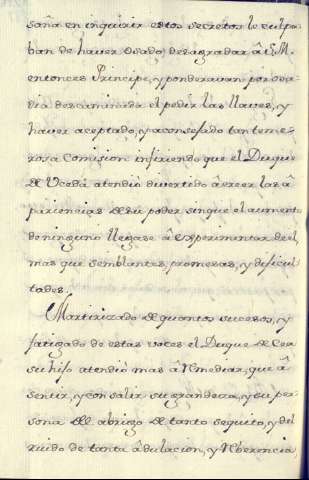 saña en inquirir estos secretos le culpa-
ban de haver osado desagradar â S. M.
entonces Principe, y ponderavan por osa-
dia descaminada el pedir las llaves, y
haver aceptado, y aconsejado tan teme-
rosa Comision infiriendo que el Duque
de Uceda atendiò divertido â creer las â
pariencias de su poder sin que el aumento
de ninguno llegase â experimentar de èl,
mas que semblantes, promesas, y dificul-
tades.
Martirizado de quantos sucesos, y
fatigado de estas voces el Duque de Cea
su hijo atendiò mas â Remediar, que â
sentir, y con salir su grandeza, y su per-
sona del abrigo de tanto sequito, y del
ruido de tanta âdulacion, y Reverencia,